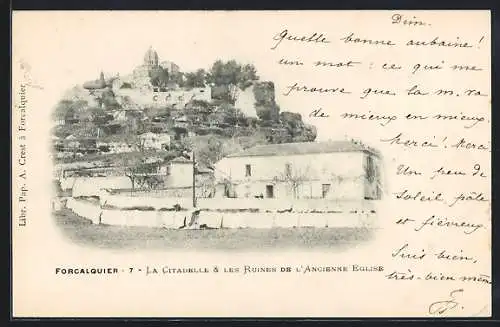 Dim.
Quelle bonne aubaine !
un mot : ce qui me
prouve que la m. va
de mieux en mieux.
Merci ! Merci
Un peu de
Soleil, pâle
et fiévreux.
Suis bien,
très-bien même.
Libr. Pap. A. Crest à Forcalquier
FORCALQUIER - 7 - LA CITADELLE & LES RUINES DE L'ANCIENNE EGLISE